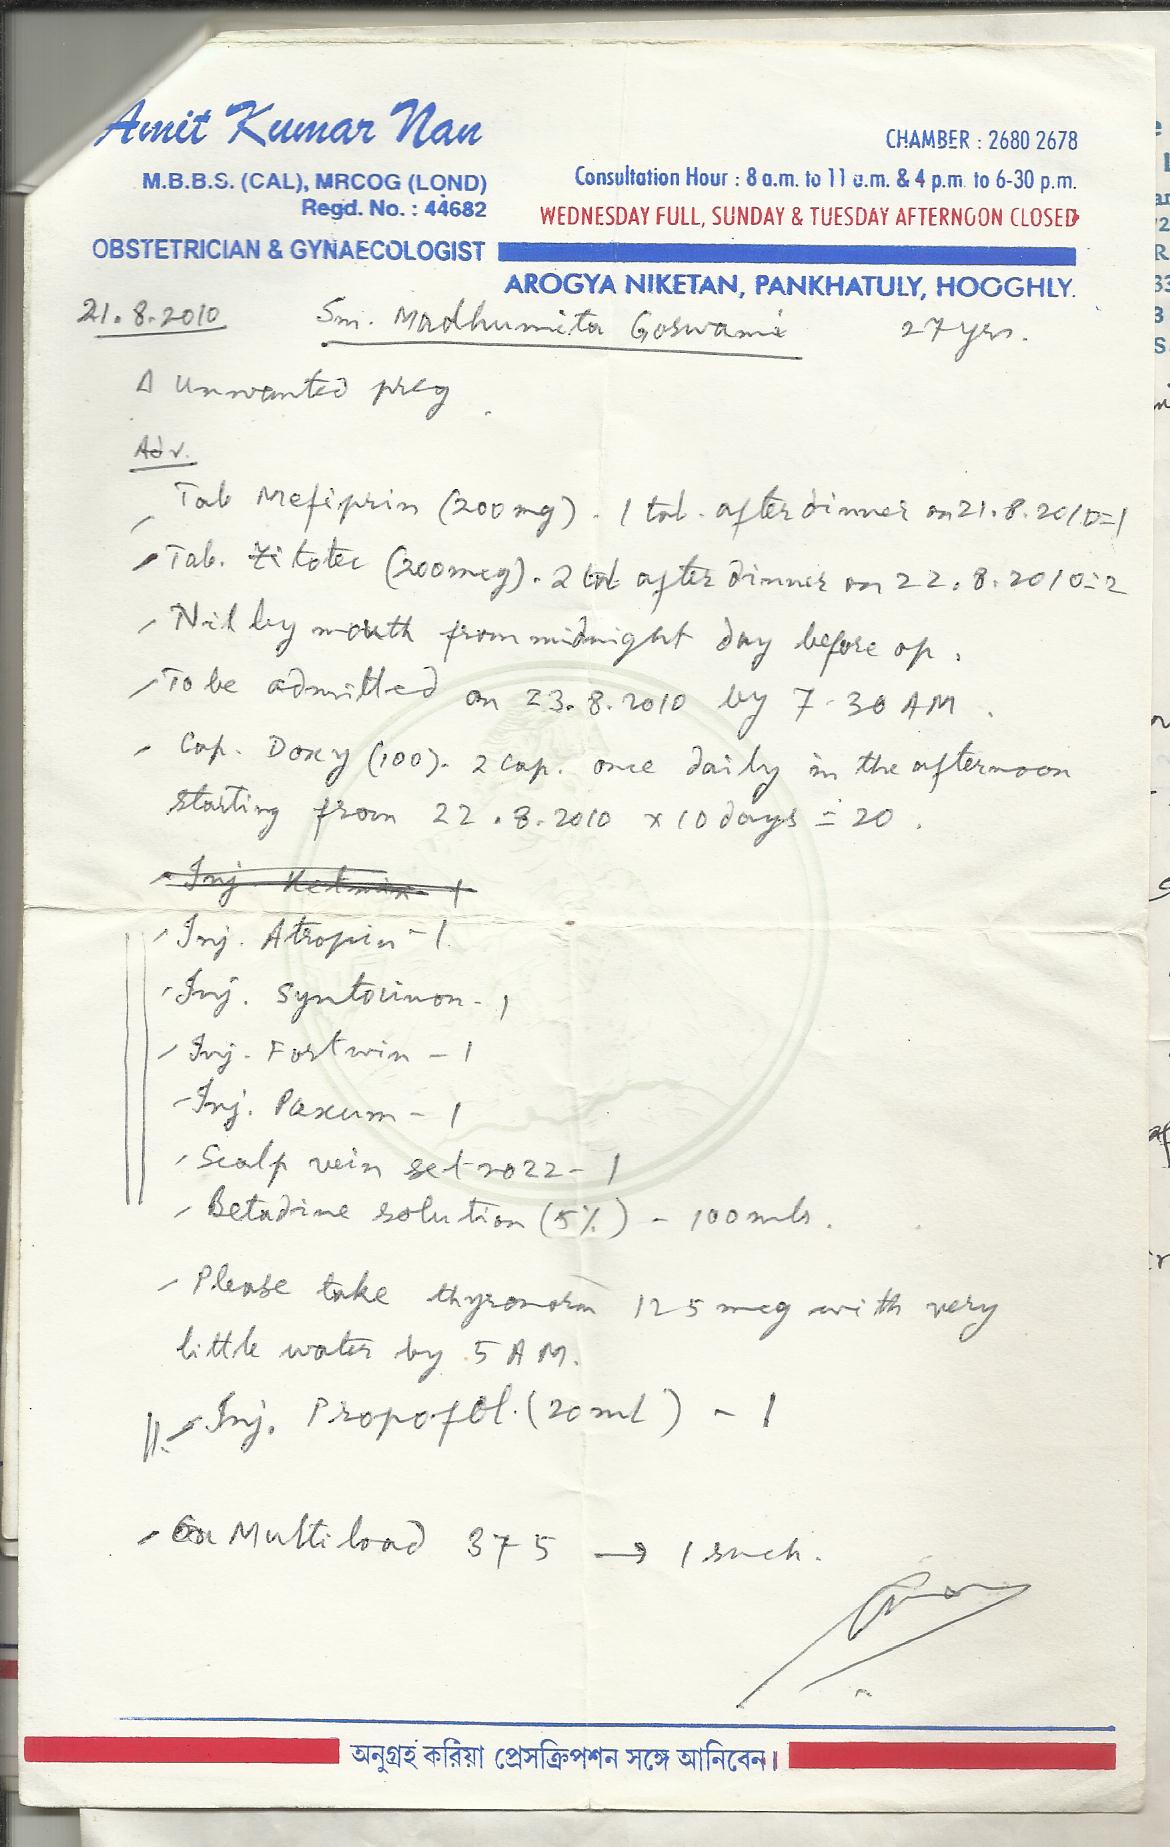 Amit Kumar Nan
M.B.B.S. (CAL), MRCOG (LOND)
Regd. No. : 44682
OBSTETRICIAN & GYNAECOLOGIST
CHAMBER : 2680 2678
Consultation Hour : 8 a.m. to 11 a.m. & 4 p.m. to 6-30 p.m.
WEDNESDAY FULL, SUNDAY & TUESDAY AFTERNOON CLOSED
AROGYA NIKETAN, PANKHATULY, HOOGHLY.
21.8.2010 Sm. Madhumita Goswami 27 yrs.
Δ Unwanted preg
Adv.
Tab Mefiprin (200mg). 1 tab. after dinner on 21.8.2010=1
Tab. Zitotec (200mcg). 2 tab after dinner on 22.8.2010=2
Nil by mouth from midnight day before op.
To be admitted on 23.8.2010 by 7.30 AM.
Cap. Doxy (100). 2 cap. once daily in the afternoon
starting from 22.8.2010 x 10 days = 20.
Inj. 1
Inj. Atropin - 1
Inj. Syntocinon - 1
Inj. Fortwin - 1
Inj. Paxum - 1
Scalp vein set no 22 - 1
Betadine solution (5%) - 100 mls.
Please take thyronorm 125 mcg with very
little water by 5 AM.
Inj. Propofol. (20ml) - 1
Multiload 375 → 1 such.
অনুগ্রহ করিয়া প্রেসক্রিপশন সঙ্গে আনিবেন।